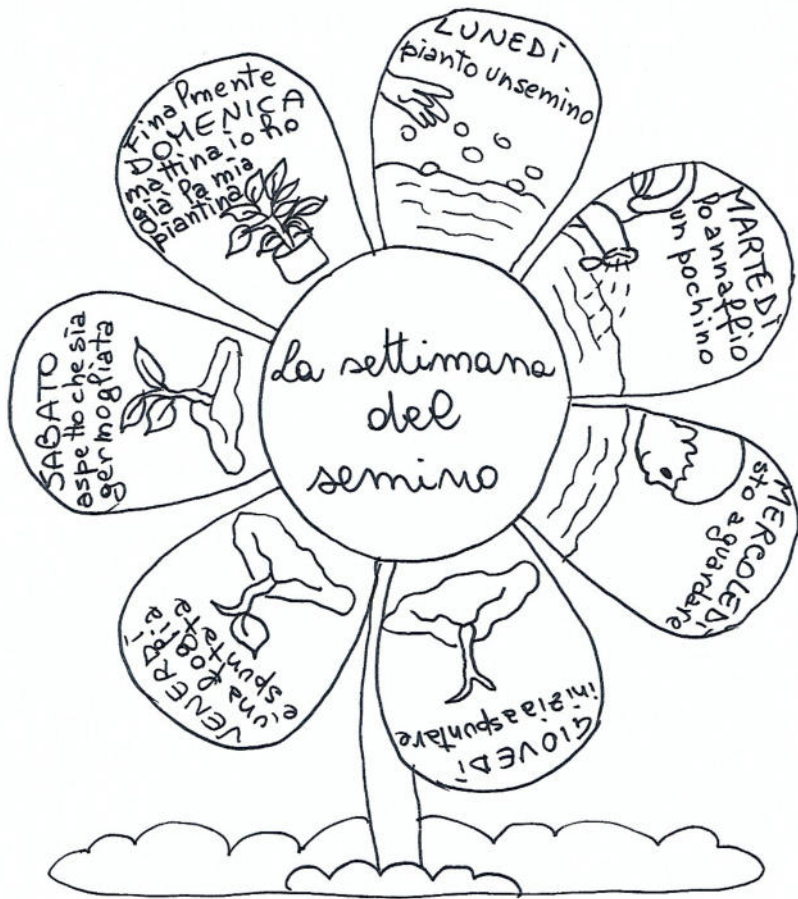 La settimana
del
semino
LUNEDÌ
pianto un semino
MARTEDÌ
lo annaffio
un pochino
MERCOLEDÌ
sto a guardare
GIOVEDÌ
inizia a spuntare
VENERDÌ
una foglia
spuntata
SABATO
aspetto che sia
germogliata
Finalmente
DOMENICA
mattina io ho
già la mia
piantina